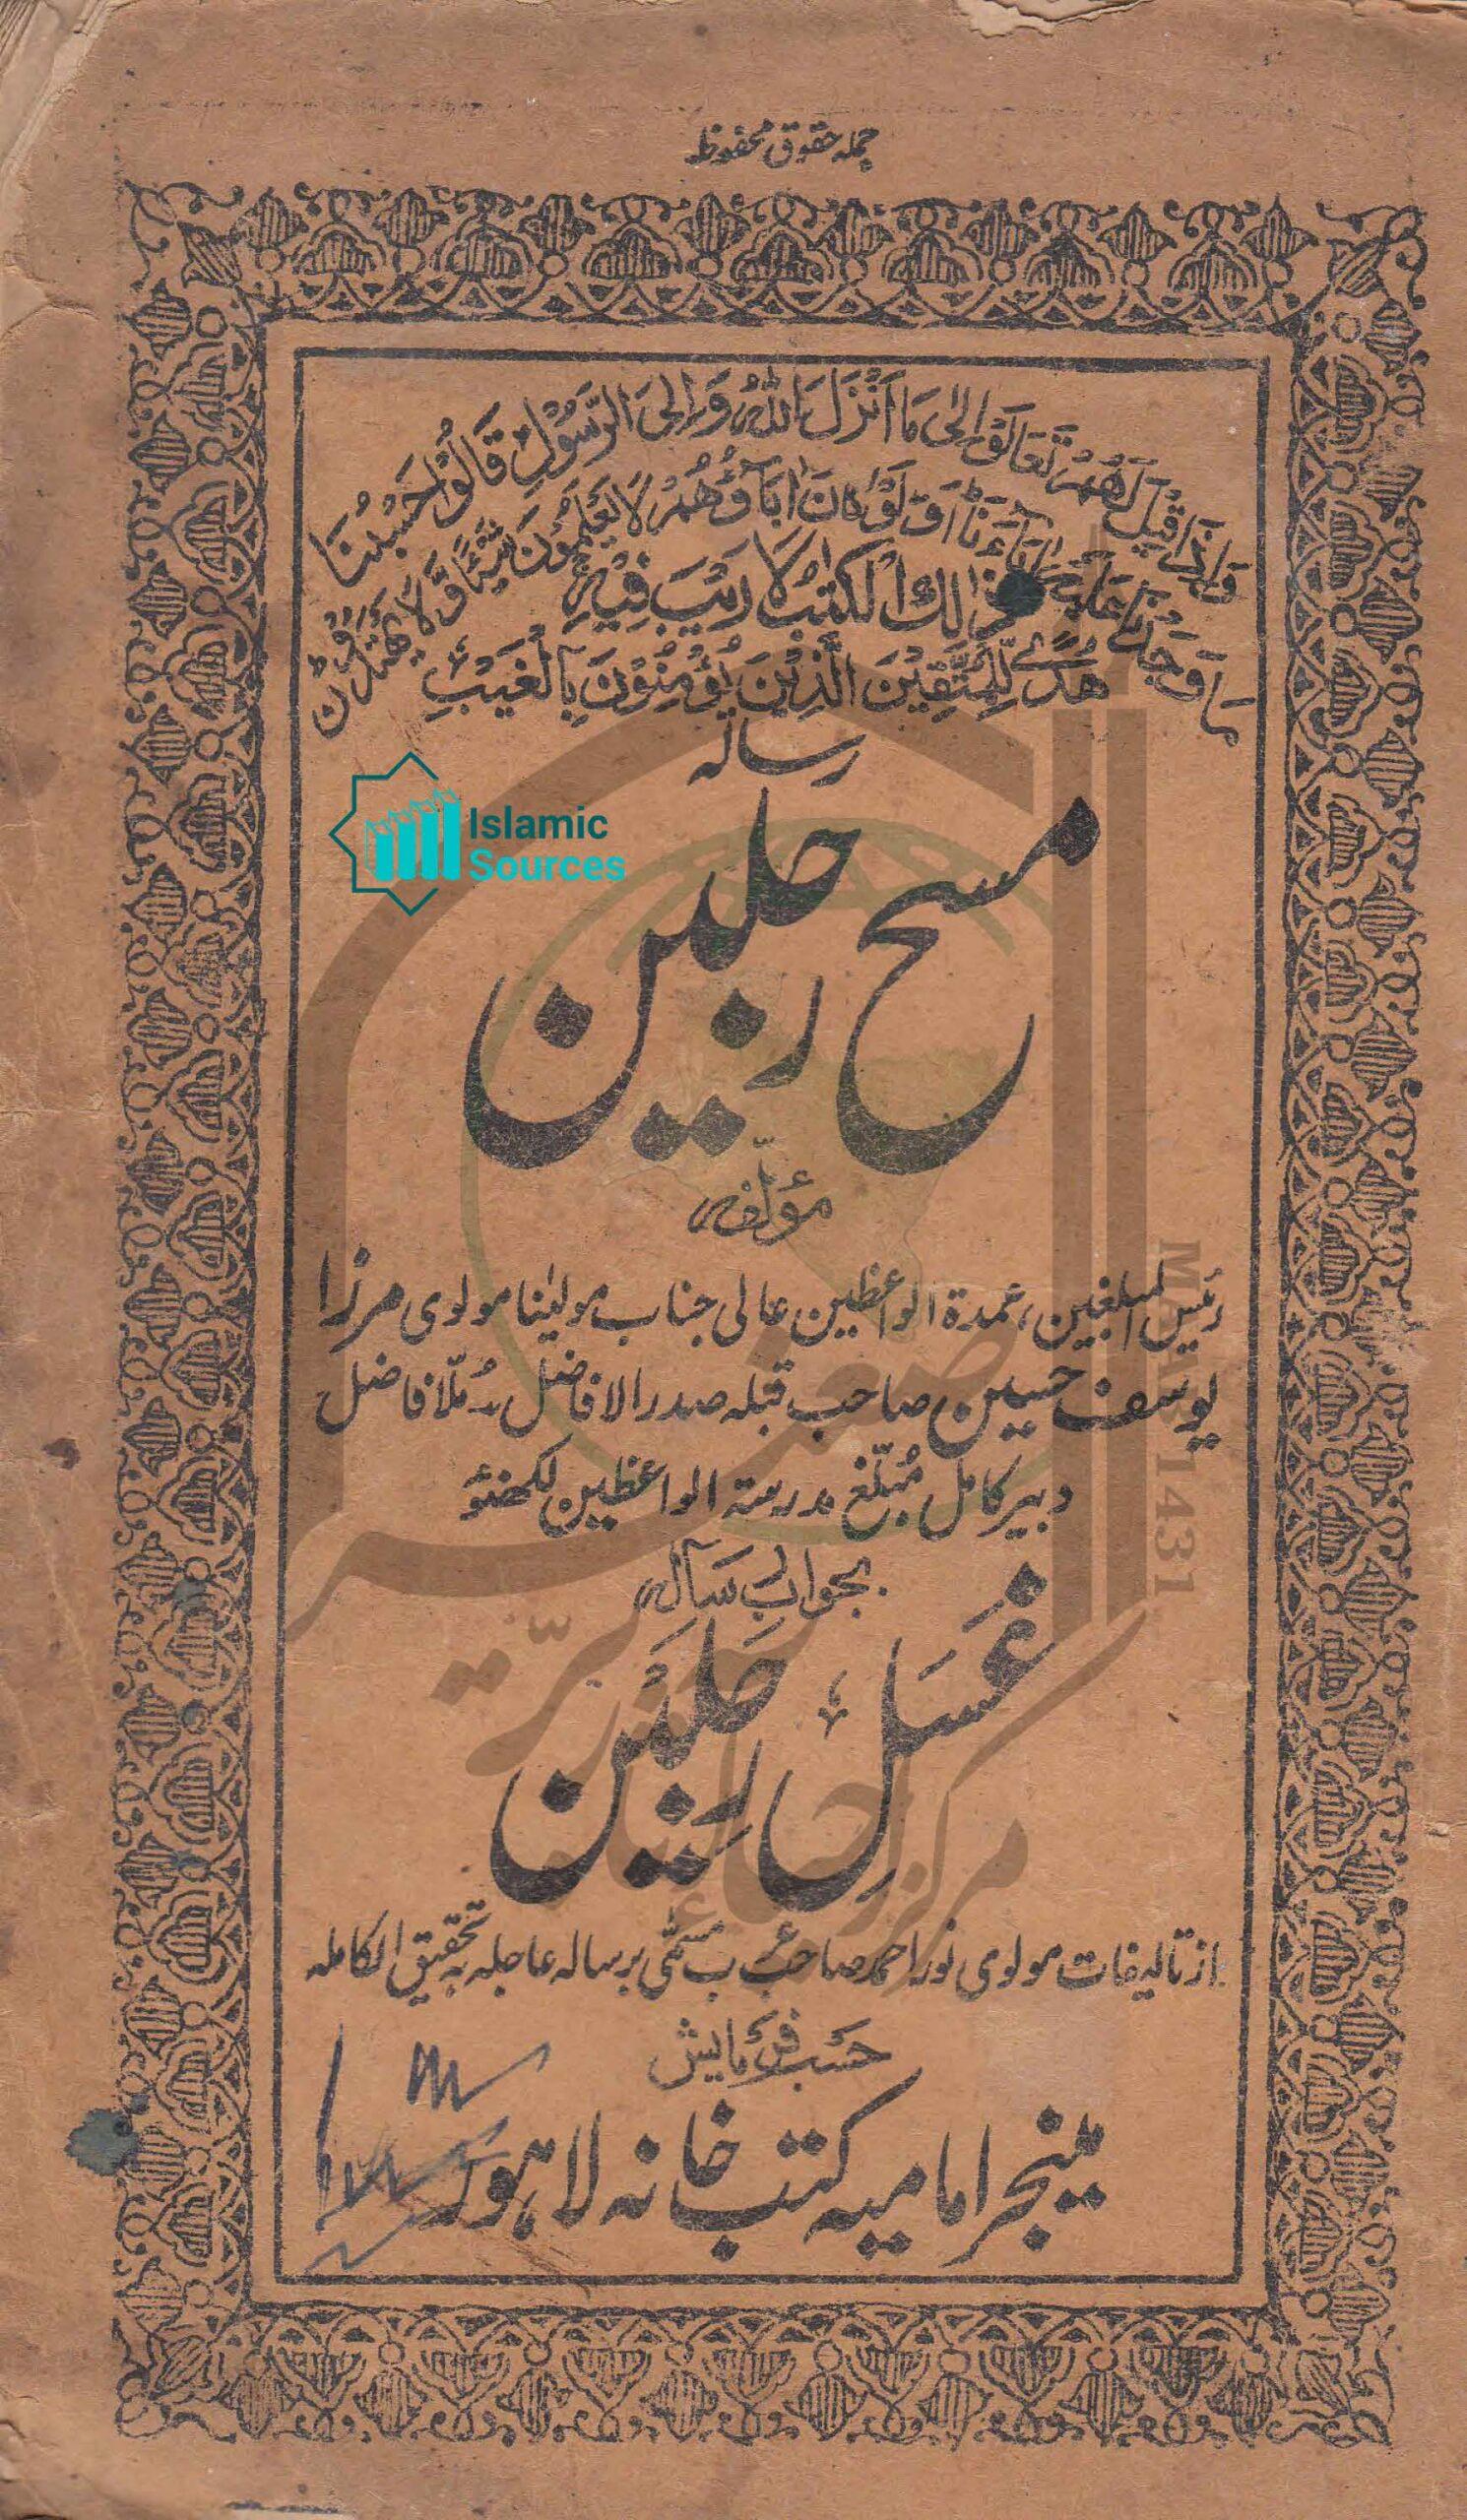 جملہ حقوق محفوظ
وَاِذَا قِيْلَ لَهُمْ تَعَالَوْا اِلٰى مَا اَنْزَلَ اللّٰهُ وَاِلَى الرَّسُوْلِ قَالُوْا حَسْبُنَا
مَا وَجَدْنَا عَلَيْهِ اٰبَآءَنَا اَوَلَوْ كَانَ اٰبَآؤُهُمْ لَا يَعْلَمُوْنَ شَيْئًا وَّلَا يَهْتَدُوْنَ
ذٰلِكَ الْكِتٰبُ لَا رَيْبَ فِيْهِ
هُدًى لِّلْمُتَّقِيْنَ الَّذِيْنَ يُؤْمِنُوْنَ بِالْغَيْبِ
رسالہ
Islamic
Sources
مسح رجلین
مؤلّفہ
رئیس المبلغین، عمدۃ الواعظین عالی جناب مولیٰنا مولوی مرزا
یوسف حسین صاحب قبلہ صدر الافاضل۔ مُلّا فاضل
دبیر کامل مُبلّغ مدرستہ الواعظین لکھنؤ
بجواب رسالہ
غَسل رِجلَین
از تالیفات مولوی نور احمد صاحب مسمّٰی برسالہ عاجلہ بہ تحقیق الکاملہ
حَسب فرمایش
مینجر امامیہ کتب خانہ لاہور
MAAB 1431
مرکز احیاء